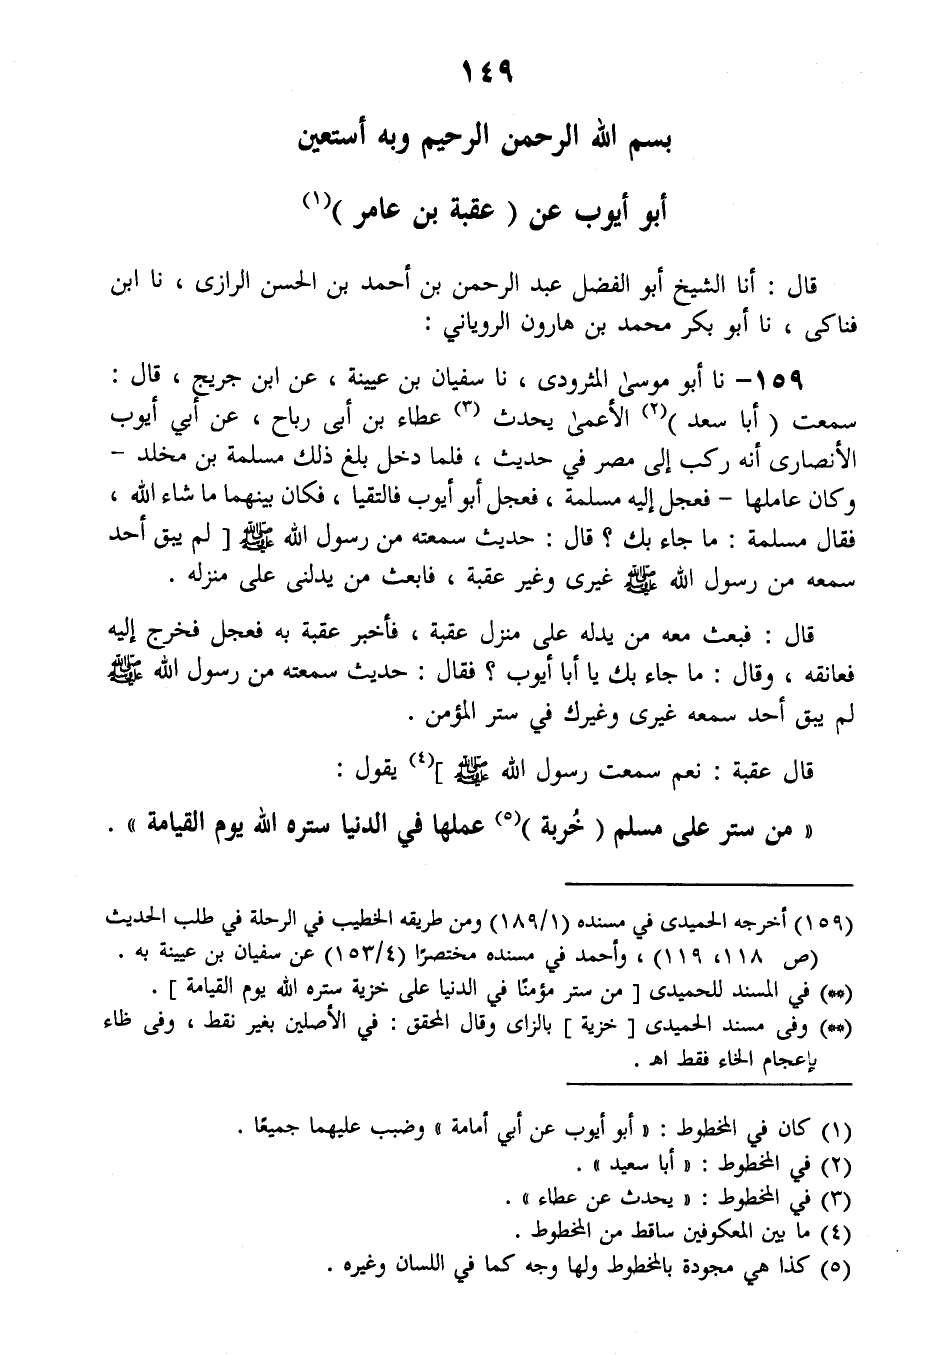 ١٤٩
بسم الله الرحمن الرحيم وبه أستعين
أبو أيوب عن ( عقبة بن عامر )(١)
قال : أنا الشيخ أبو الفضل عبد الرحمن بن أحمد بن الحسن الرازى ، نا ابن
فناكى ، نا أبو بكر محمد بن هارون الروياني :
١٥٩- نا أبو موسىٰ المثرودى ، نا سفيان بن عيينة ، عن ابن جريج ، قال :
سمعت ( أبا سعد )(٢) الأعمىٰ يحدث (٣) عطاء بن أبى رباح ، عن أبي أيوب
الأنصارى أنه ركب إلى مصر في حديث ، فلما دخل بلغ ذلك مسلمة بن مخلد -
وكان عاملها - فعجل إليه مسلمة ، فعجل أبو أيوب فالتقيا ، فكان بينهما ما شاء الله ،
فقال مسلمة : ما جاء بك ؟ قال : حديث سمعته من رسول الله ﷺ [ لم يبق أحد
سمعه من رسول الله ﷺ غيرى وغير عقبة ، فابعث من يدلنى على منزله .
قال : فبعث معه من يدله على منزل عقبة ، فأخبر عقبة به فعجل فخرج إليه
فعانقه ، وقال : ما جاء بك يا أبا أيوب ؟ فقال : حديث سمعته من رسول الله ﷺ
لم يبق أحد سمعه غيرى وغيرك في ستر المؤمن .
قال عقبة : نعم سمعت رسول الله ﷺ ](٤) يقول :
« من ستر على مسلم ( خُربة )(٥) عملها في الدنيا ستره الله يوم القيامة » .
(١٥٩) أخرجه الحميدى في مسنده (١٨٩/١) ومن طريقه الخطيب في الرحلة في طلب الحديث
(ص ١١٨، ١١٩) ، وأحمد في مسنده مختصرًا (١٥٣/٤) عن سفيان بن عيينة به .
(**) في المسند للحميدى [ من ستر مؤمنًا في الدنيا على خزية ستره الله يوم القيامة ] .
(**) وفى مسند الحميدى [ خزية ] بالزاى وقال المحقق : في الأصلين بغير نقط ، وفى ظاء
بإعجام الخاء فقط اهـ .
(١) كان في المخطوط : « أبو أيوب عن أبي أمامة » وضبب عليهما جميعًا .
(٢) في المخطوط : « أبا سعيد » .
(٣) في المخطوط : « يحدث عن عطاء » .
(٤) ما بين المعكوفين ساقط من المخطوط .
(٥) كذا هي مجودة بالمخطوط ولها وجه كما في اللسان وغيره .